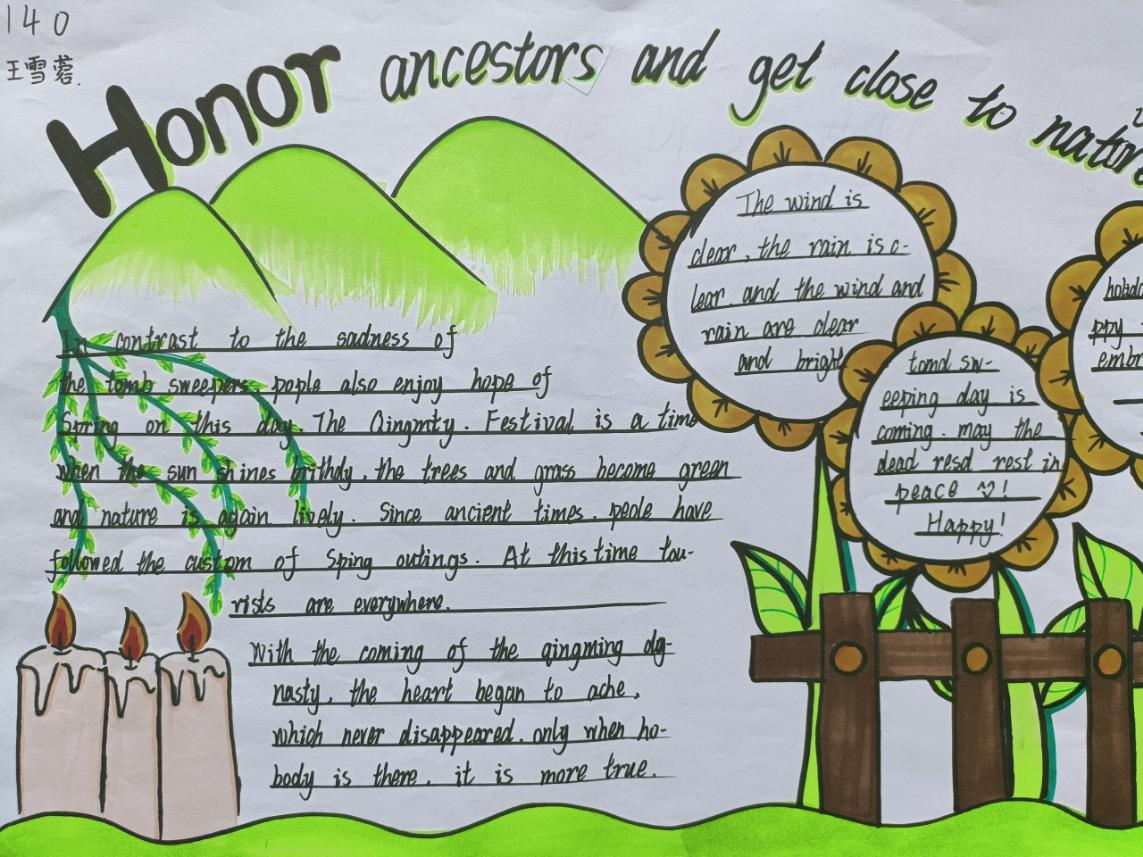 140
王雪蓉.
Honor ancestors and get close to nature
In contrast to the sadness of
the tomb sweepers, pople also enjoy hope of
Spring on this day. The Qingmty. Festival is a time
when the sun shines brithdy, the trees and grass become green
and nature is again lively. Since ancient times. peole have
followed the custom of Sping outings. At this time tou-
rists are everywhere.
With the coming of the qingming dg-
nasty, the heart began to ache,
which never disappeared. only when ho-
body is there, it is more true.
The wind is
clear, the rain is c-
lear. and the wind and
rain are clear
and bright
tomd sw-
eeping day is
coming. may the
dead resd rest in
peace !
Happy!
holida
ppy
embr